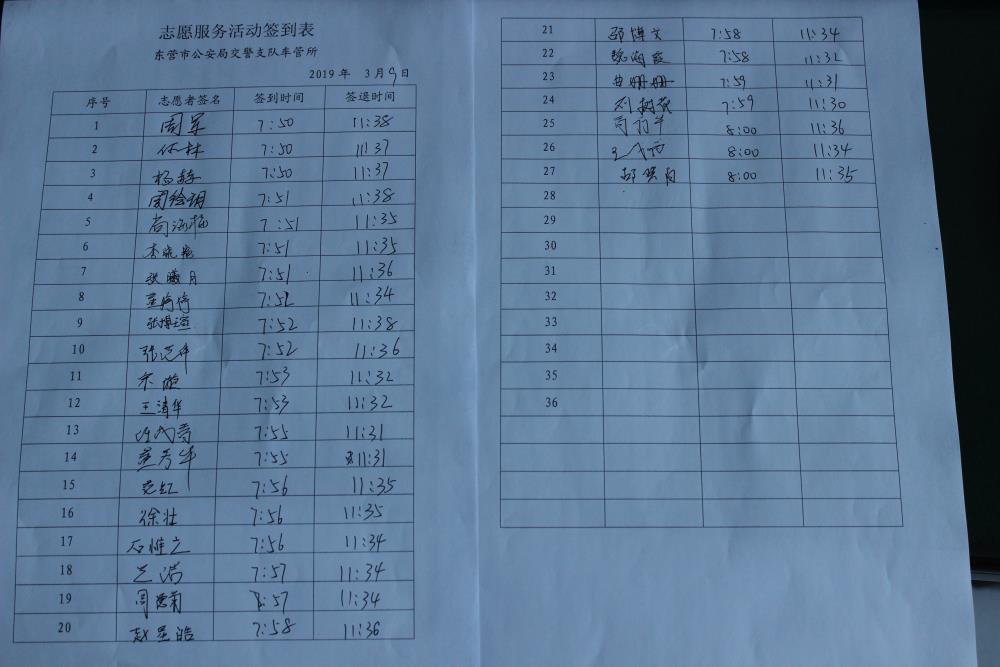 志愿服务活动签到表
东营市公安局交警支队车管所
2019年 3月9日
序号 志愿者签名 签到时间 签退时间
1 周军 7:50 11:38
2 任林 7:50 11:37
3 杨静 7:50 11:37
4 7:51 11:38
5 7:51 11:35
6 7:51 11:35
7 7:51 11:36
8 7:52 11:34
9 张博瑄 7:52 11:38
10 7:52 11:36
11 7:53 11:32
12 王清华 7:53 11:32
13 7:55 11:31
14 7:55 11:31
15 7:56 11:35
16 徐壮 7:56 11:35
17 7:56 11:34
18 7:57 11:34
19 7:57 11:34
20 赵星皓 7:58 11:36
21 邵博文 7:58 11:34
22 7:58 11:32
23 7:59 11:31
24 7:59 11:30
25 8:00 11:36
26 8:00 11:34
27 8:00 11:35
28
29
30
31
32
33
34
35
36